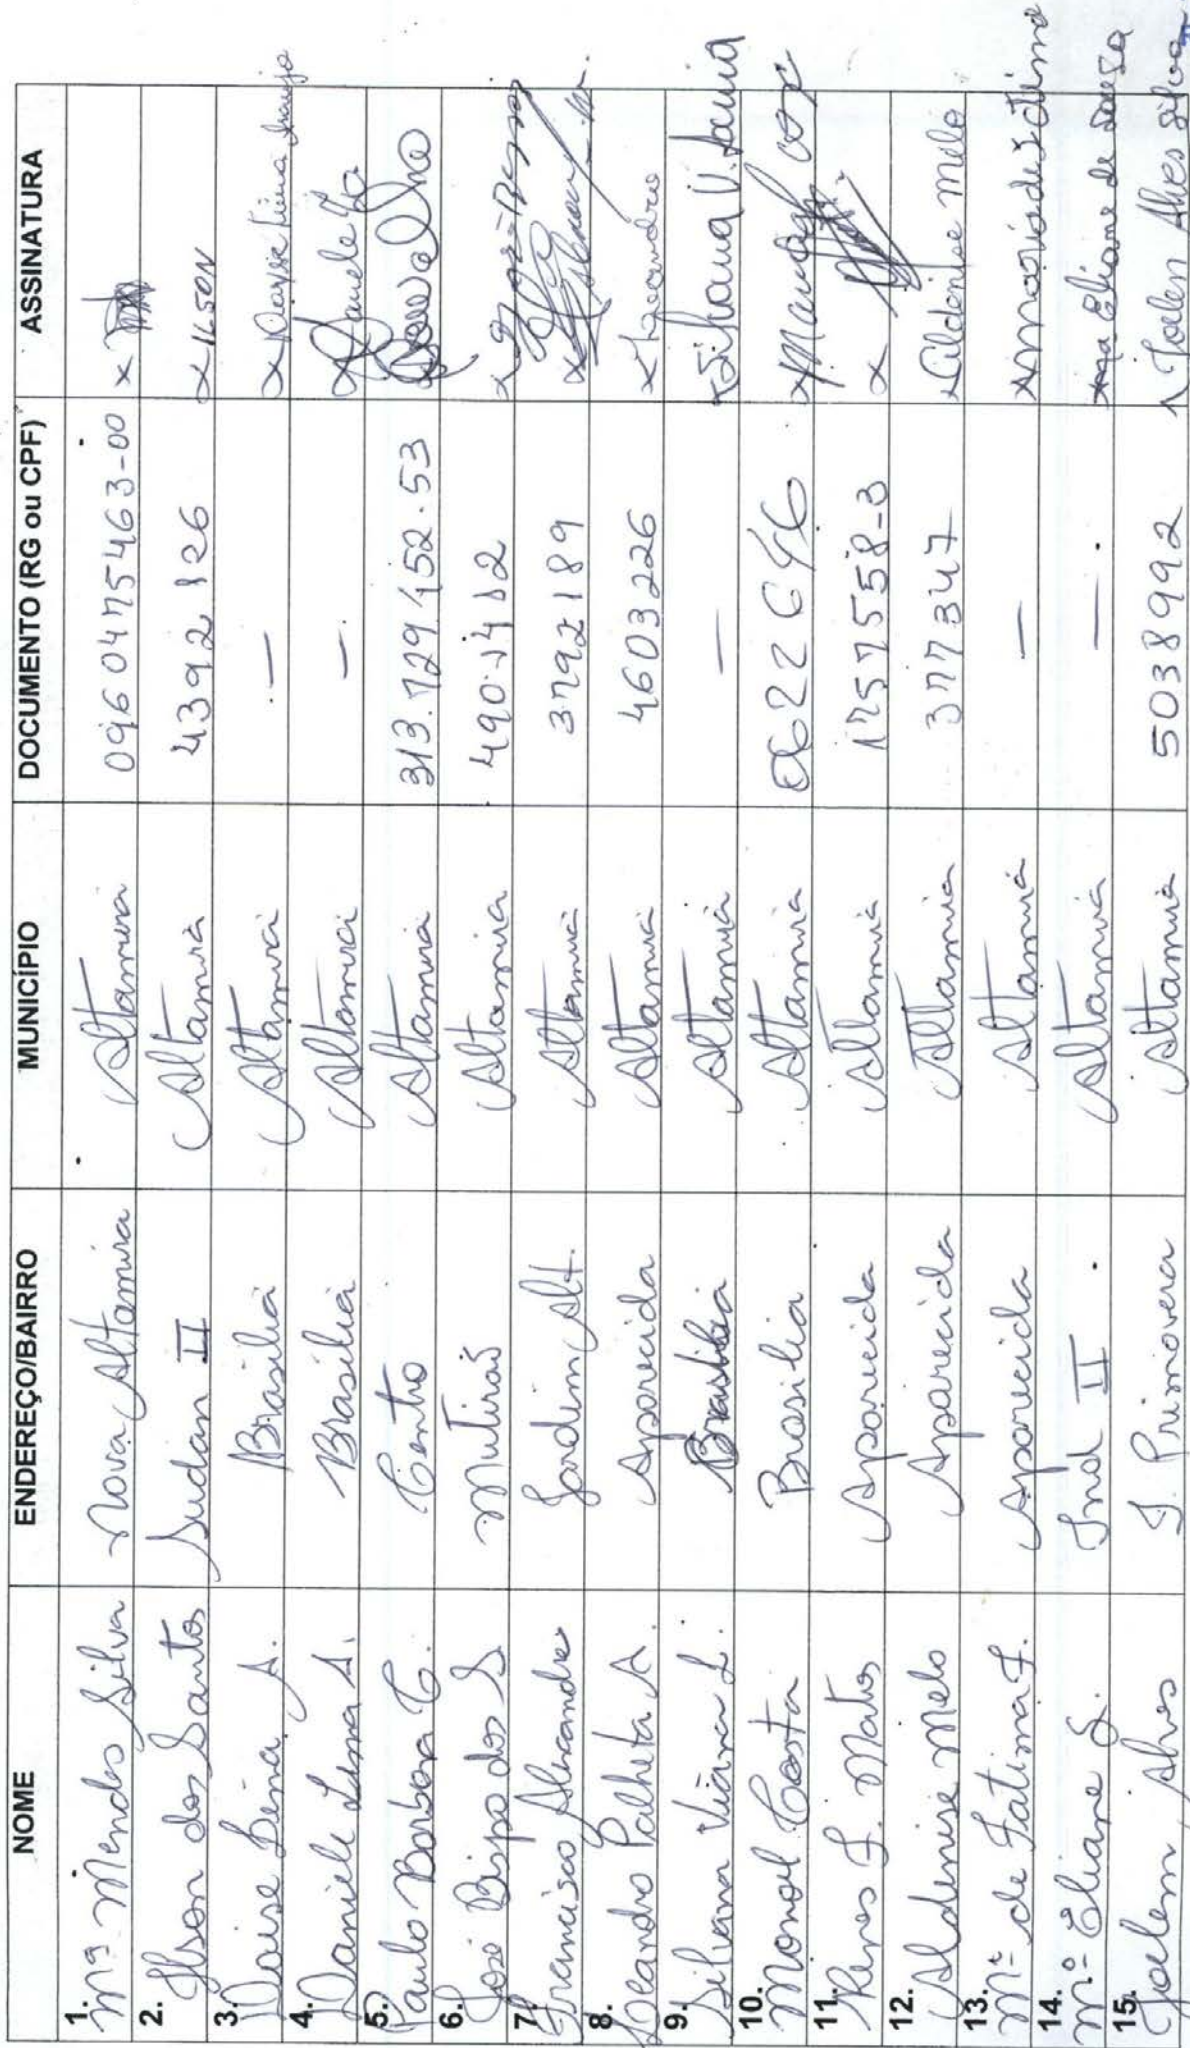 NOME ENDEREÇO/BAIRRO MUNICÍPIO DOCUMENTO (RG ou CPF) ASSINATURA
1. Mª Mendes Silva Nova Altamira Altamira 0960475463-00 x
2. Ilson dos Santos Sudan II Altamira 4392126 x ILSON
3. Daise Lima A. Brasilia Altamira — x Dayse Lima Araujo
4. Daniele Lima A. Brasilia Altamira —
5. Paulo Barbosa C. Centro Altamira 313.729.452.53
6. José Bispo dos S Mutirão Altamira x
7. Francisco Alexandre Jardim Alt. Altamira 3792189 x
8. Leandro Palheta A. Aparecida Altamira 4603226 x Leandro
9. Silvana Viana L. Brasilia Altamira — x Silvana V. Lama
10. Manoel Costa Brasilia Altamira x
11. Renes F. Matos Aparecida Altamira 1757558-3 x
12. Aldenise Melo Aparecida Altamira 377347 x Aldenise Melo
13. Mª de Fatima F. Aparecida Altamira — x
14. Mª Eliane S. Ind II Altamira — Eliane de Sousa
15. Joelen Alves J. Primavera Altamira 5038992 Joelen Alves Silva